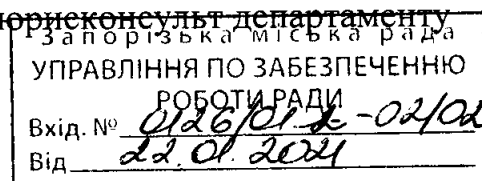 юрисконсульт департаменту
Запорізька міська рада
УПРАВЛІННЯ ПО ЗАБЕЗПЕЧЕННЮ
РОБОТИ РАДИ
Вхід. № 0126/01-02/02
Від 22.01.2021